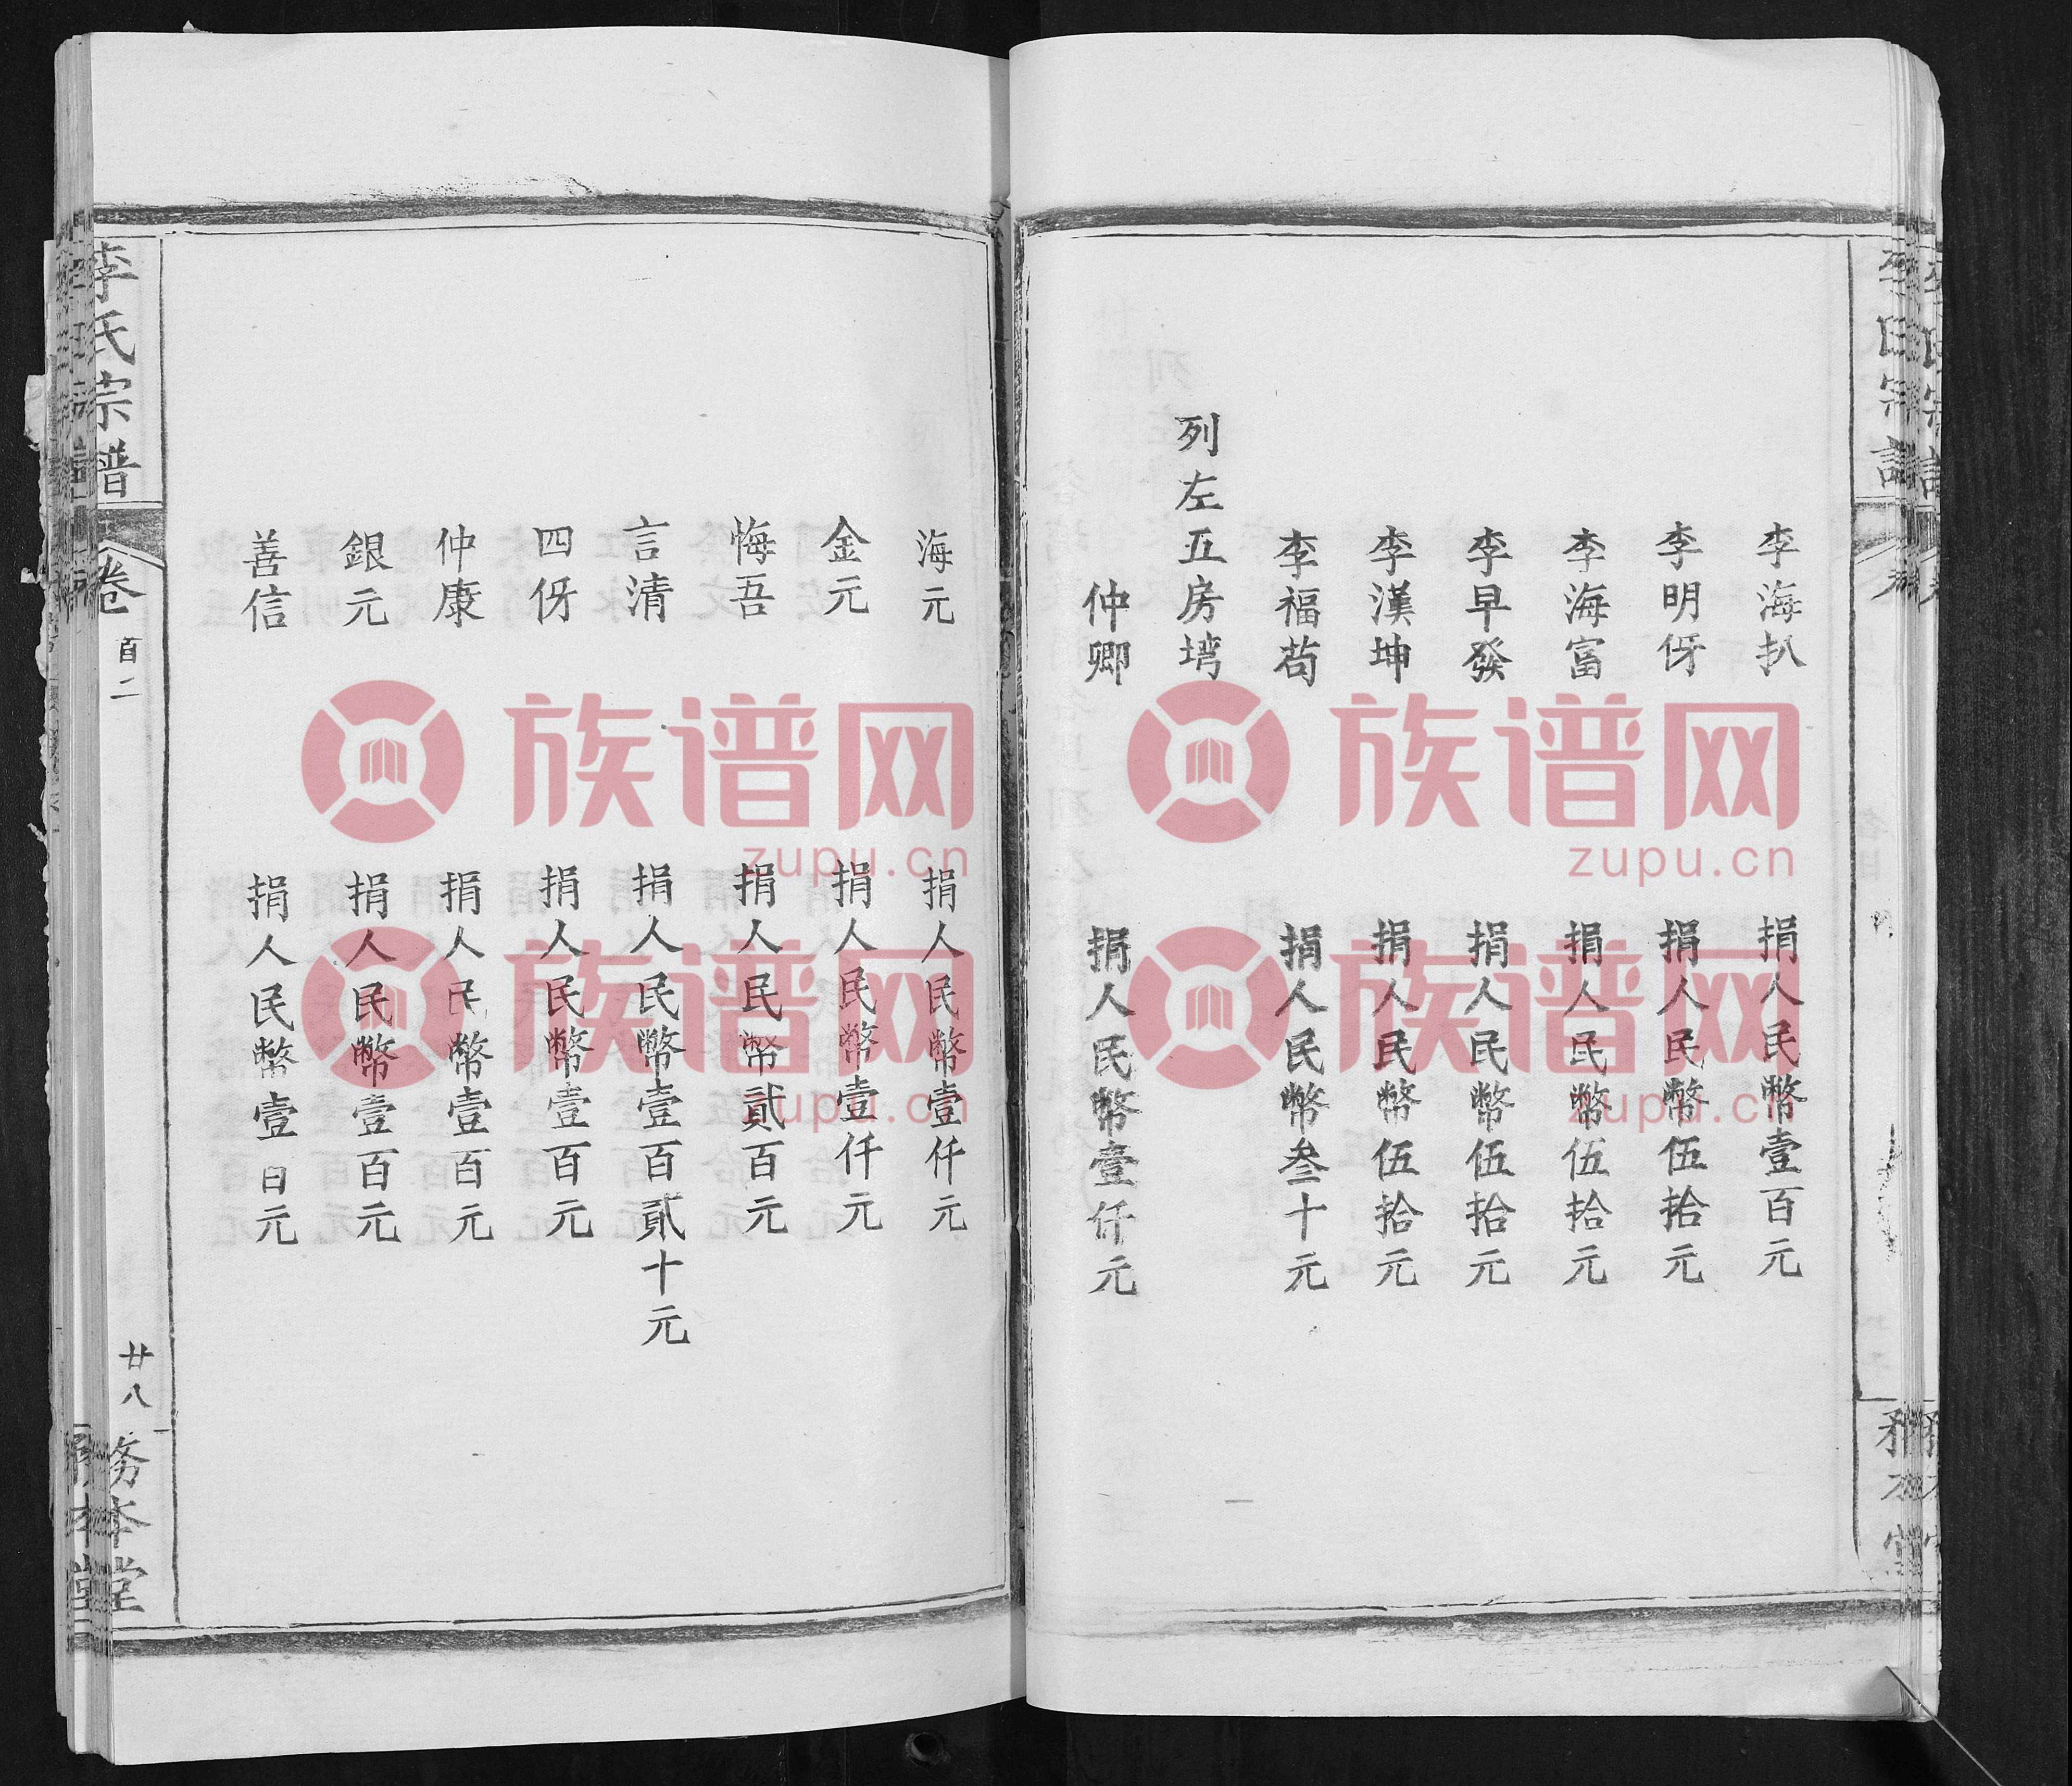 李海扒 捐人民幣壹百元
李明伢 捐人民幣伍拾元
李海富 捐人民幣伍拾元
李早發 捐人民幣伍拾元
李漢坤 捐人民幣伍拾元
李福苟 捐人民幣叁十元
列左五房塆
仲卿 捐人民幣壹仟元
海元 捐人民幣壹仟元
金元 捐人民幣壹仟元
悔吾 捐人民幣貳百元
言清 捐人民幣壹百貳十元
四伢 捐人民幣壹百元
仲康 捐人民幣壹百元
銀元 捐人民幣壹百元
善信 捐人民幣壹百元
李氏宗譜
卷 首二
廿八
務本堂
族谱网
zupu.cn
族谱网
zupu.cn
族谱网
zupu.cn
族谱网
zupu.cn